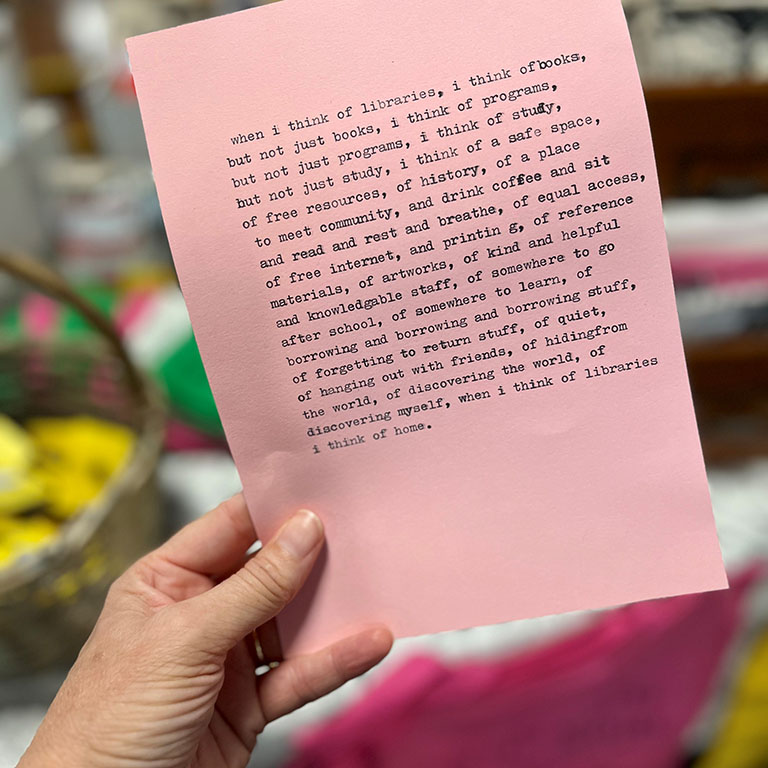 when i think of libraries, i think ofbooks,
but not just books, i think of programs,
but not just programs, i think of study,
but not just study, i think of a safe space,
of free resources, of history, of a place
to meet community, and drink coffee and sit
and read and rest and breathe, of equal access,
of free internet, and printin g, of reference
materials, of artworks, of kind and helpful
and knowledgable staff, of somewhere to go
after school, of somewhere to learn, of
borrowing and borrowing and borrowing stuff,
of forgetting to return stuff, of quiet,
of hanging out with friends, of hidingfrom
the world, of discovering the world, of
discovering myself, when i think of libraries
i think of home.